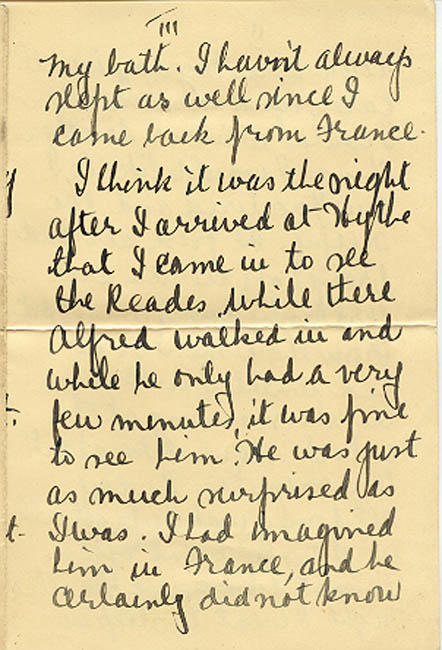 III
my bath. I havn't always
slept as well since I
came back from France.
I think it was the night
after I arrived at Hythe
that I came in to see
the Reades, while there
Alfred walked in and
while he only had a very
few minutes, it was fine
to see him. He was just
as much surprised as
I was. I had imagined
him in France, and he
certainly did not know